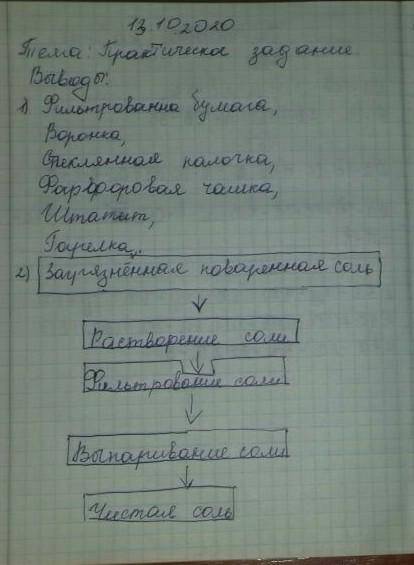 13.10.2020
Тема: Практическа задание
Выводы:
1) Фильтрованна бумага,
Воронка,
Стеклянная палочка,
Фарфоровая чашка,
Штатит,
Горелка.
2) Загрязнённая поваренная соль
Растворение соли
Фильтрование соли
Выпаривание соли
Чистая соль